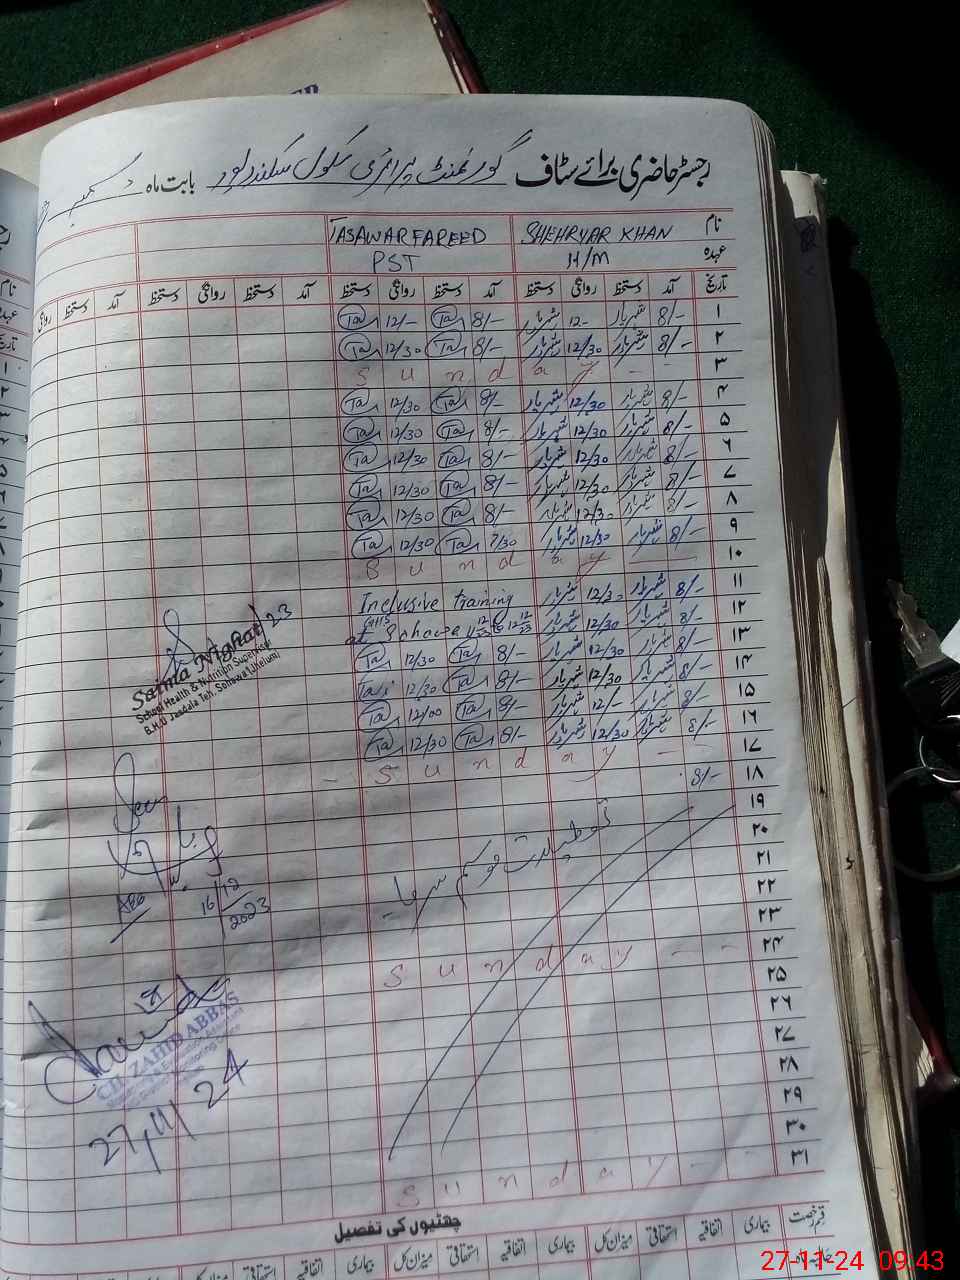 رجسٹر حاضری برائے سٹاف گورنمنٹ پرائمری سکول سکندرپور بابت ماہ دسمبر
نام SHEHRYAR KHAN TASAWAR FAREED
عہدہ H/M PST
تاریخ آمد دستخط روانگی دستخط آمد دستخط روانگی دستخط آمد دستخط روانگی دستخط آمد دستخط روانگی
۱ 8/- شہریار 12- شہریار 8/- Ta 12/- Ta
۲ 8/- شہریار 12/30 شہریار 8/- Ta 12/30 Ta
۳ Sunday - -
۴ 8/- شہریار 12/30 شہریار 8/- Ta 12/30 Ta
۵ 8/- شہریار 12/30 شہریار 8/- Ta 12/30 Ta
۶ 8/- شہریار 12/30 شہریار 8/- Ta 12/30 Ta
۷ 8/- شہریار 12/30 شہریار 8/- Ta 12/30 Ta
۸ 8/- شہریار 12/30 شہریار 8/- Ta 12/30 Ta
۹ 8/- شہریار 12/30 شہریار 7/30 Ta 12/30 Ta
۱۰ Sunday
۱۱ 8/- شہریار 12/30 شہریار Inclusive training
۱۲ 8/- شہریار 12/30 شہریار at GHS
۱۳ 8/- شہریار 12/30 شہریار 8/- Ta 12/30 Ta
۱۴ 8/- شہریار 12/30 شہریار 8/- Ta 12/30 Ta
۱۵ 8/- شہریار 12/- شہریار 8/- Ta 12/00 Ta
۱۶ 8/- شہریار 12/30 شہریار 8/- Ta 12/30 Ta
۱۷ Sunday - -
۱۸ 8/-
۱۹
۲۰ تعطیلات موسم سرما
۲۱
۲۲
۲۳
۲۴ Sunday - -
۲۵
۲۶
۲۷
۲۸
۲۹
۳۰
۳۱ Sunday - -
Saima
School Health & Nutrition Supervisor
B.H.U Jandala Teh. Sohawa (Jhelum)
AEO
16/12/2023
CH. ZAHID ABBAS
27/11/24
چھٹیوں کی تفصیل
قسم رخصت بیماری اتفاقیہ استحقاقی میزان کل بیماری اتفاقیہ استحقاقی میزان کل بیماری اتفاقیہ استحقاقی میزان کل
27-11-24 09:43